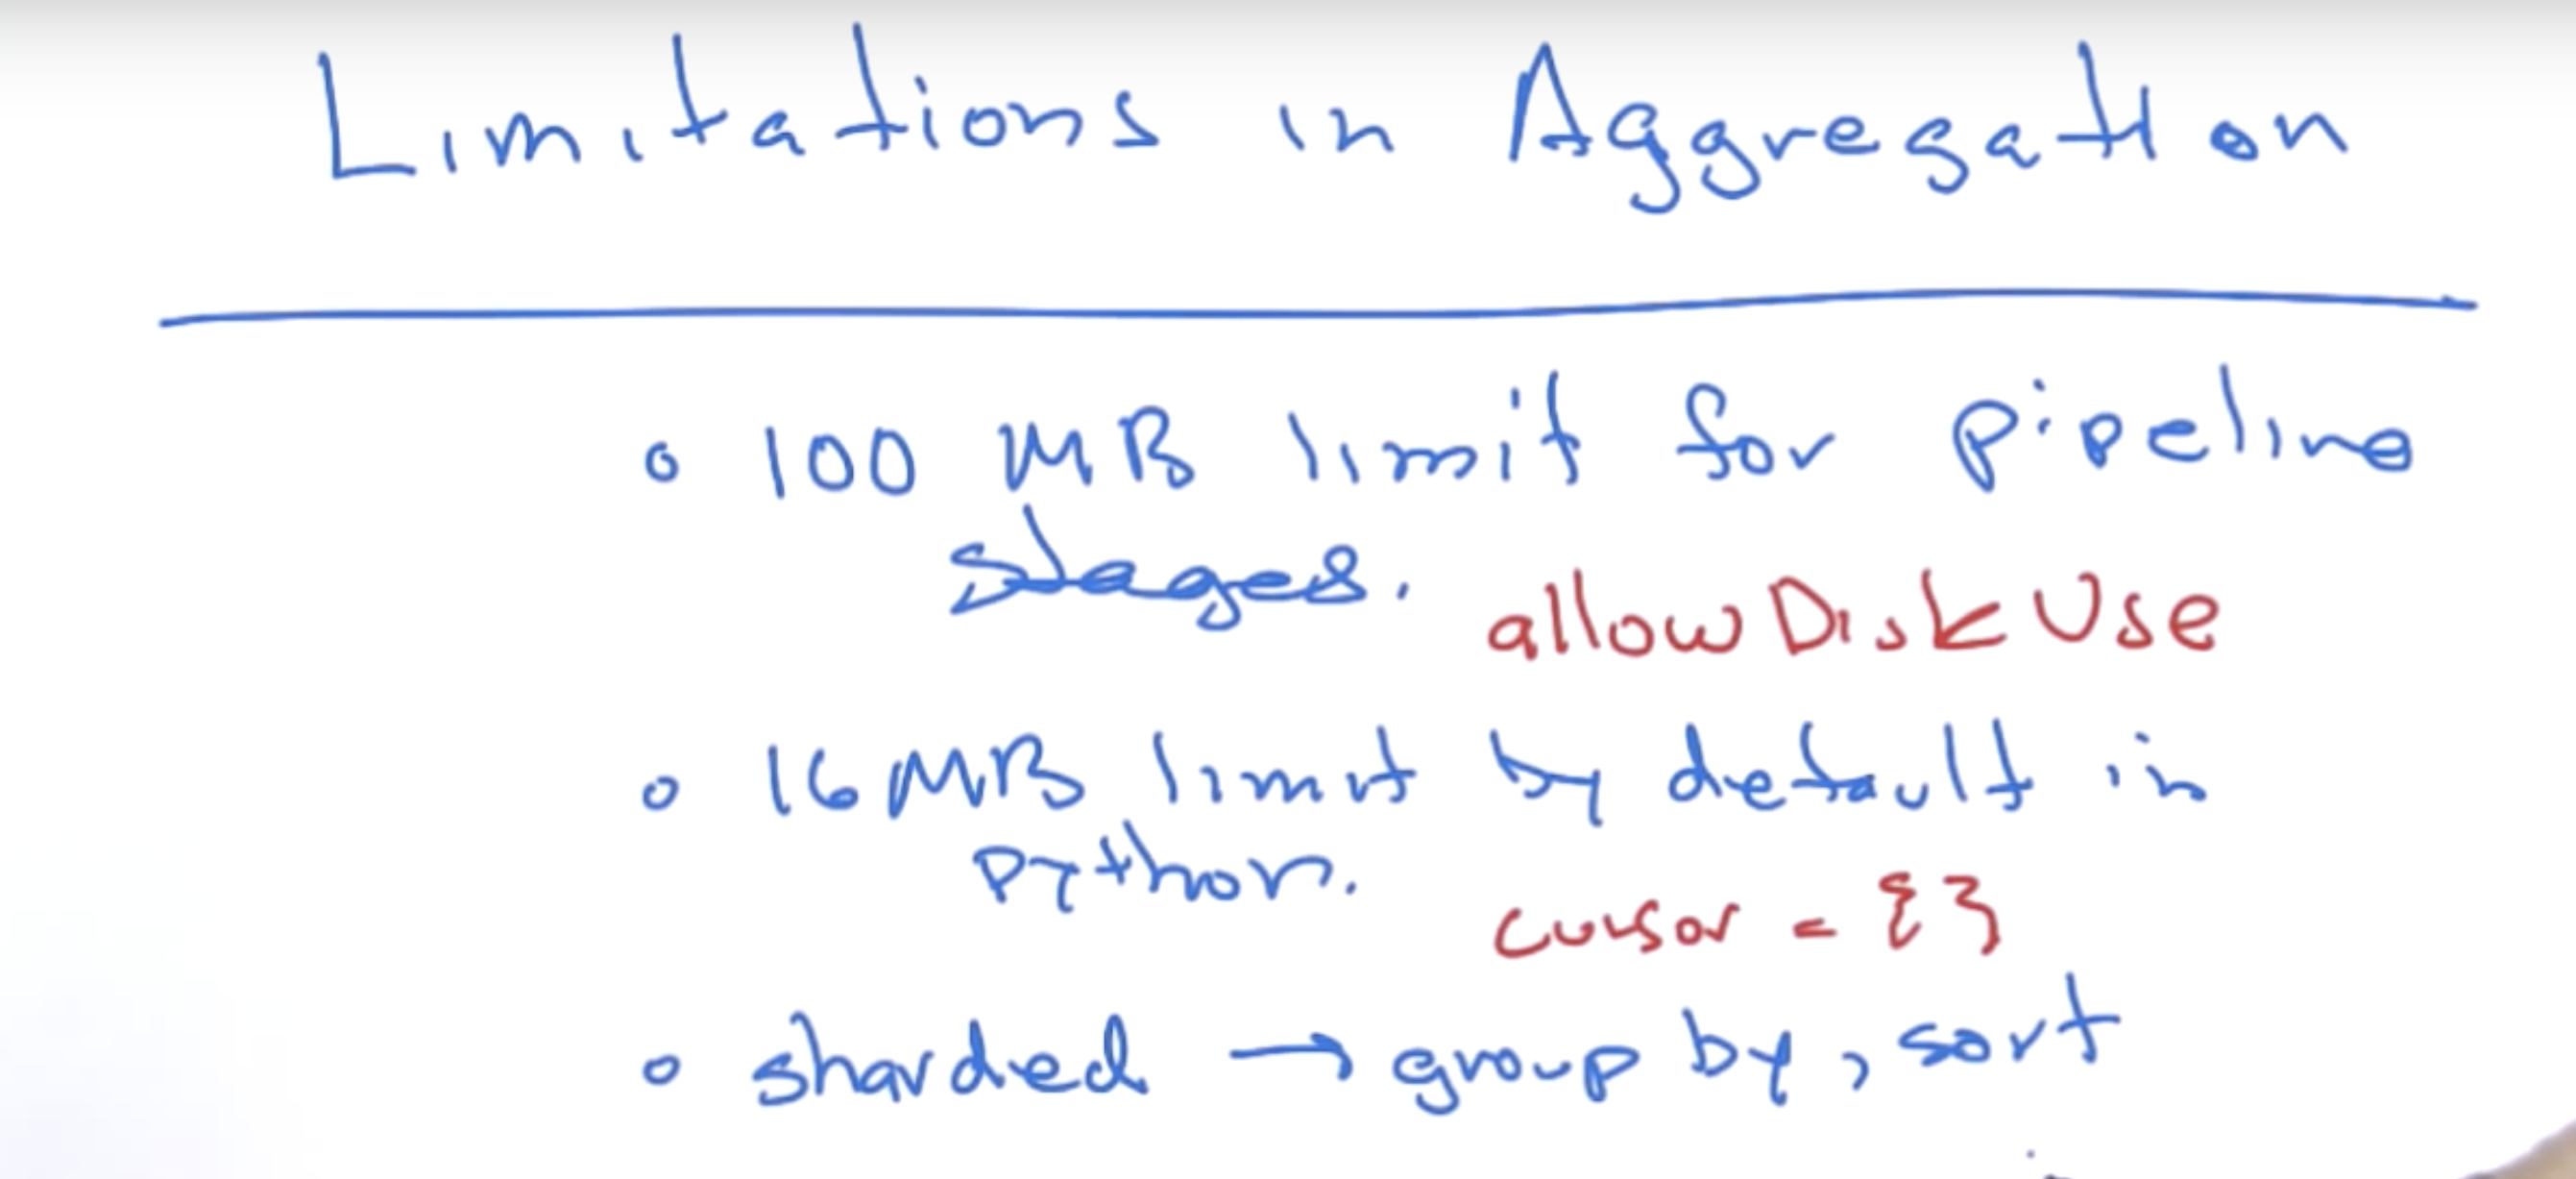 Limitations in Aggregation
100 MB limit for pipeline
stages.
allowDiskUse
16MB limit by default in
python.
cursor = {}
sharded → group by, sort